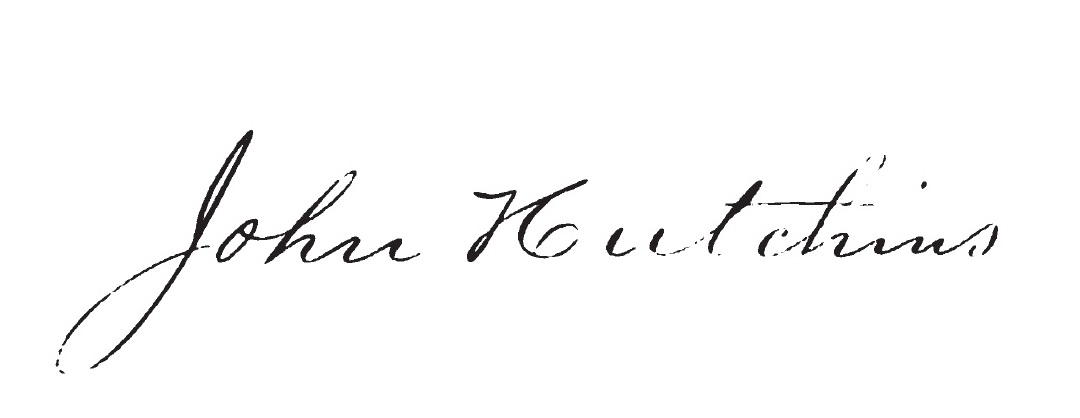 John Hutchins